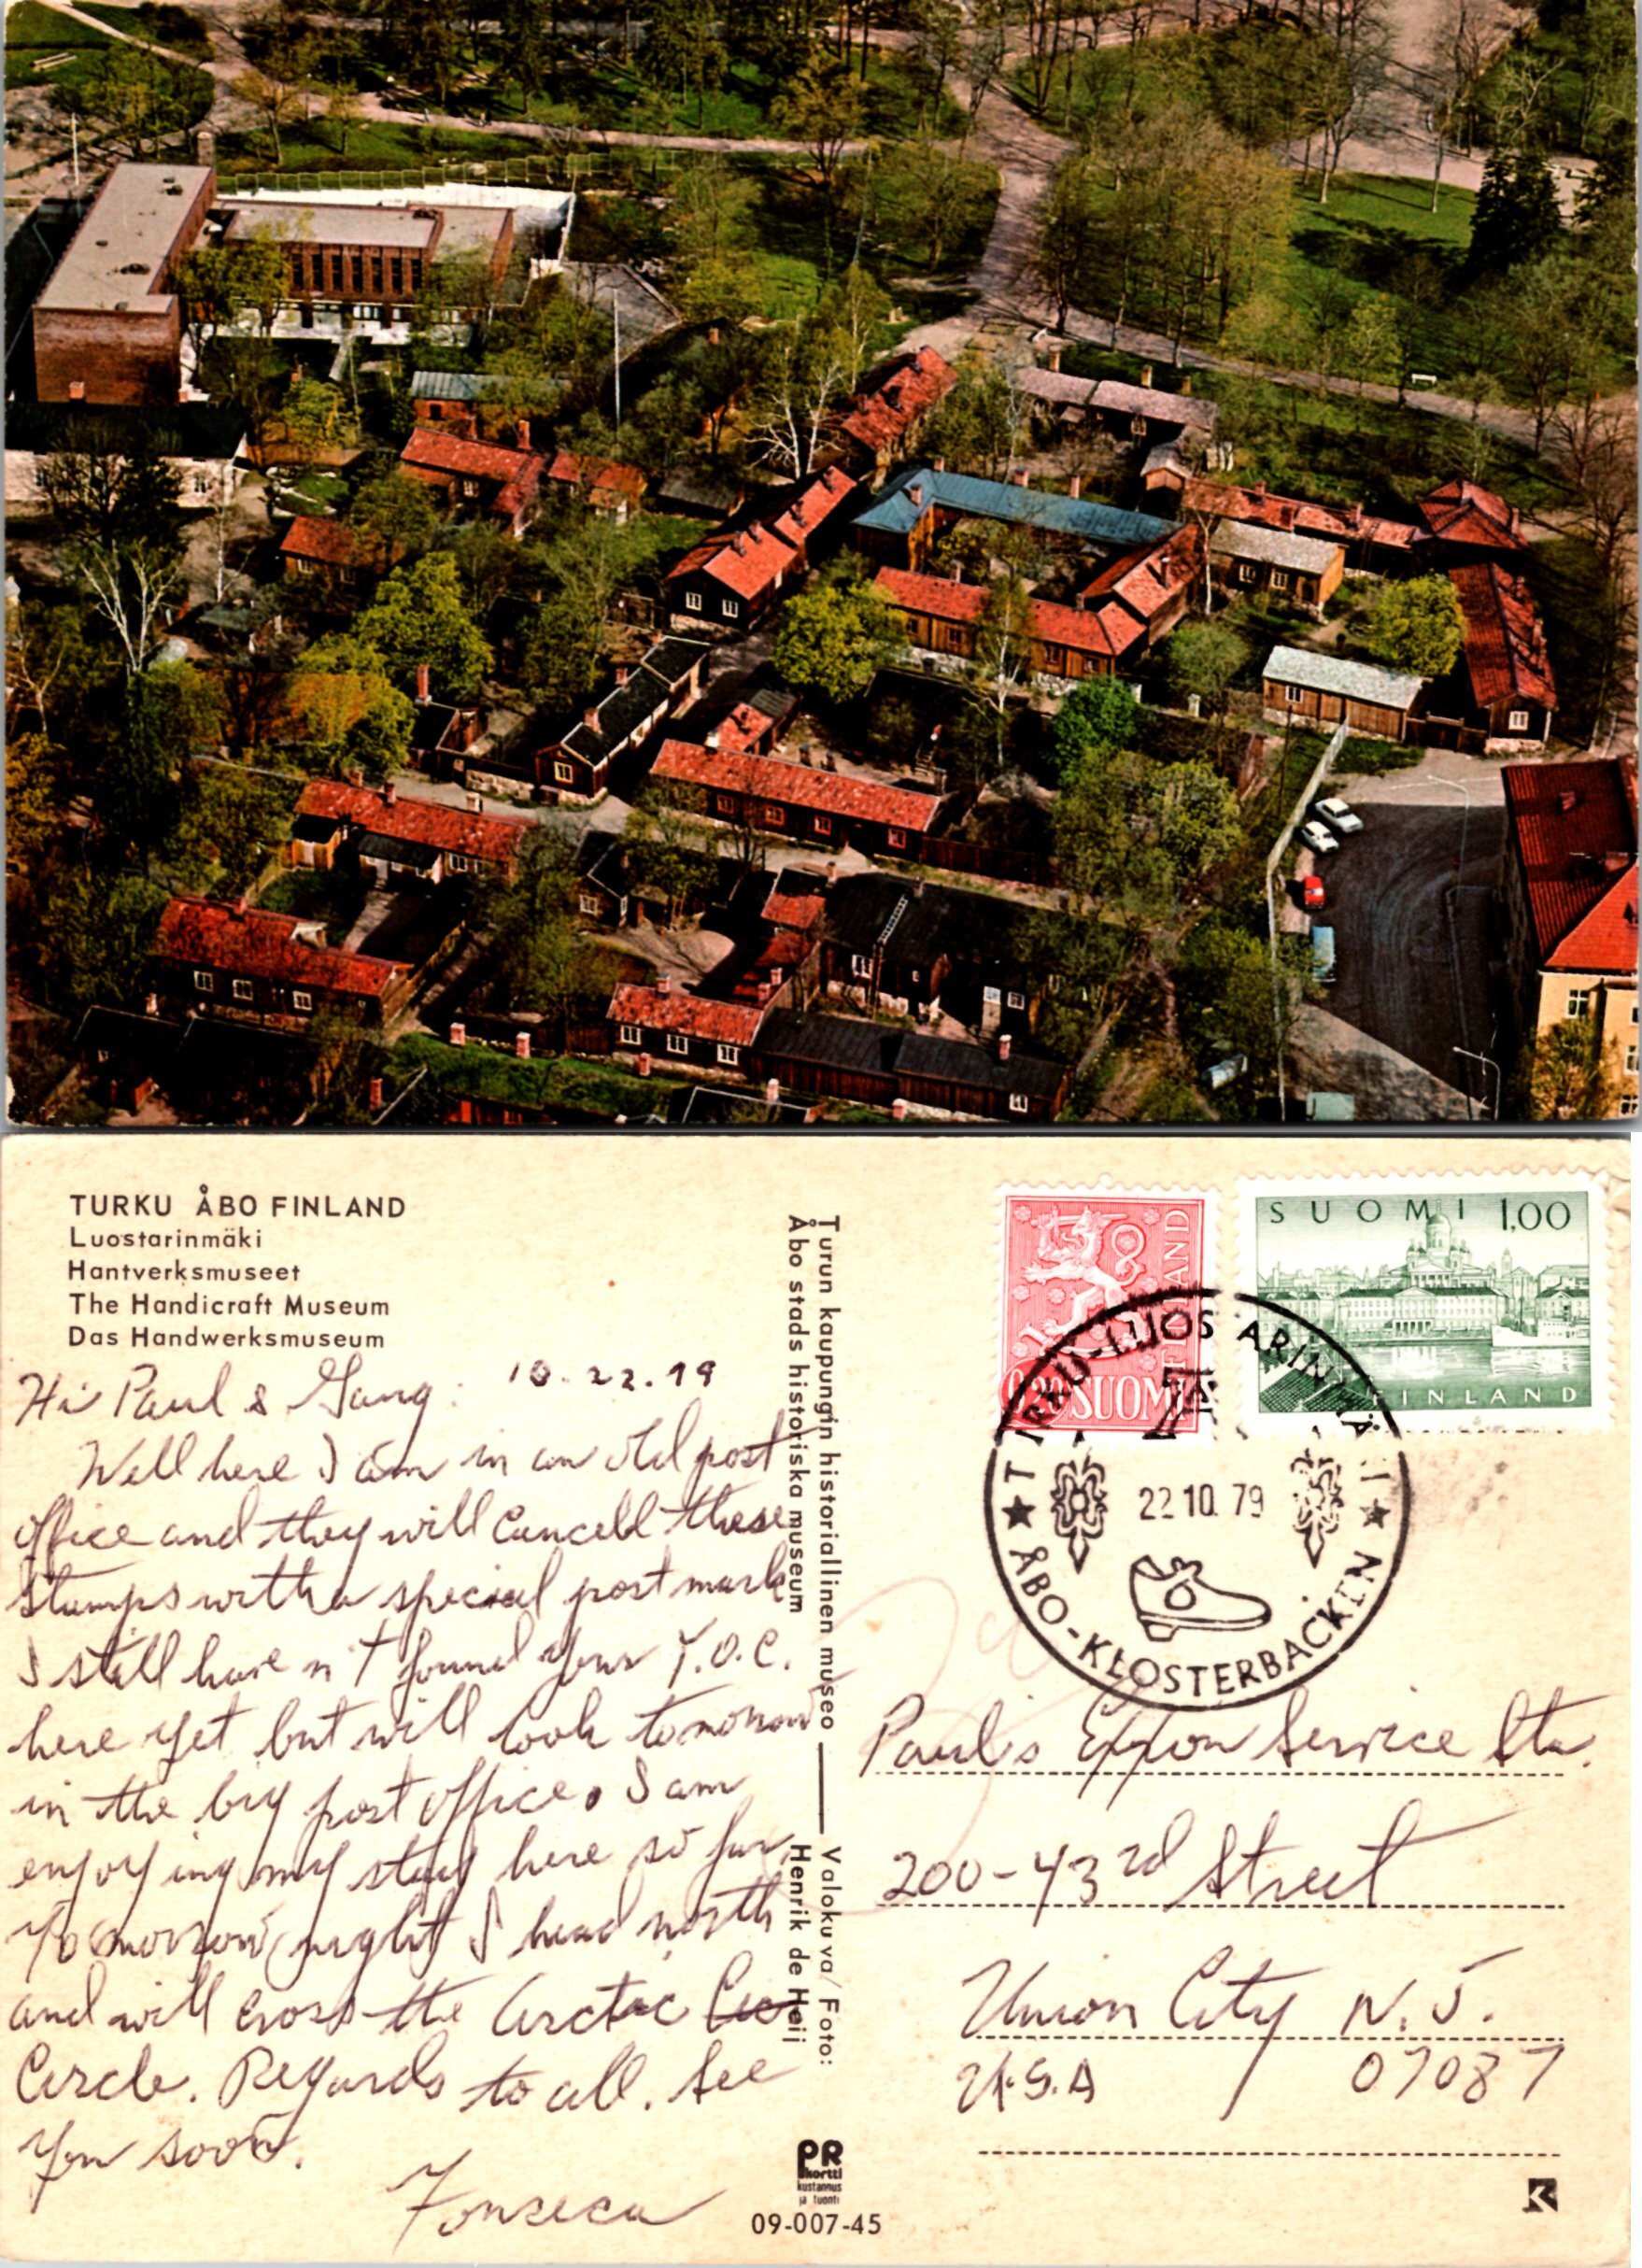 TURKU ÅBO FINLAND
Luostarinmäki
Hantverksmuseet
The Handicraft Museum
Das Handwerksmuseum
Hi Paul & Gang. 10.22.79
Well here I am in an old post
office and they will cancell these
stamps with a special post mark
I still have n't found your F.D.C.
here yet but will look tomorrow
in the big post office. I am
enjoying my stay here so far,
Tomorrow night I head north
and will cross the Arctic Cir
Circle. Regards to all. See
you soon.
Fonseca
Turun kaupungin historiallinen museo — Valokuva/Foto:
Åbo stads historiska museum Henrik de Heij
PR
kortti
kustannus
ja tuonti
09-007-45
0,20 SUOMI
FINLAND
SUOMI 1,00
FINLAND
TURKU-LUOSTARINMÄKI
22.10.79
ÅBO-KLOSTERBACKEN
Paul's Exxon Service Sta.
200-43rd Street
Union City N.J.
U.S.A 07087
K